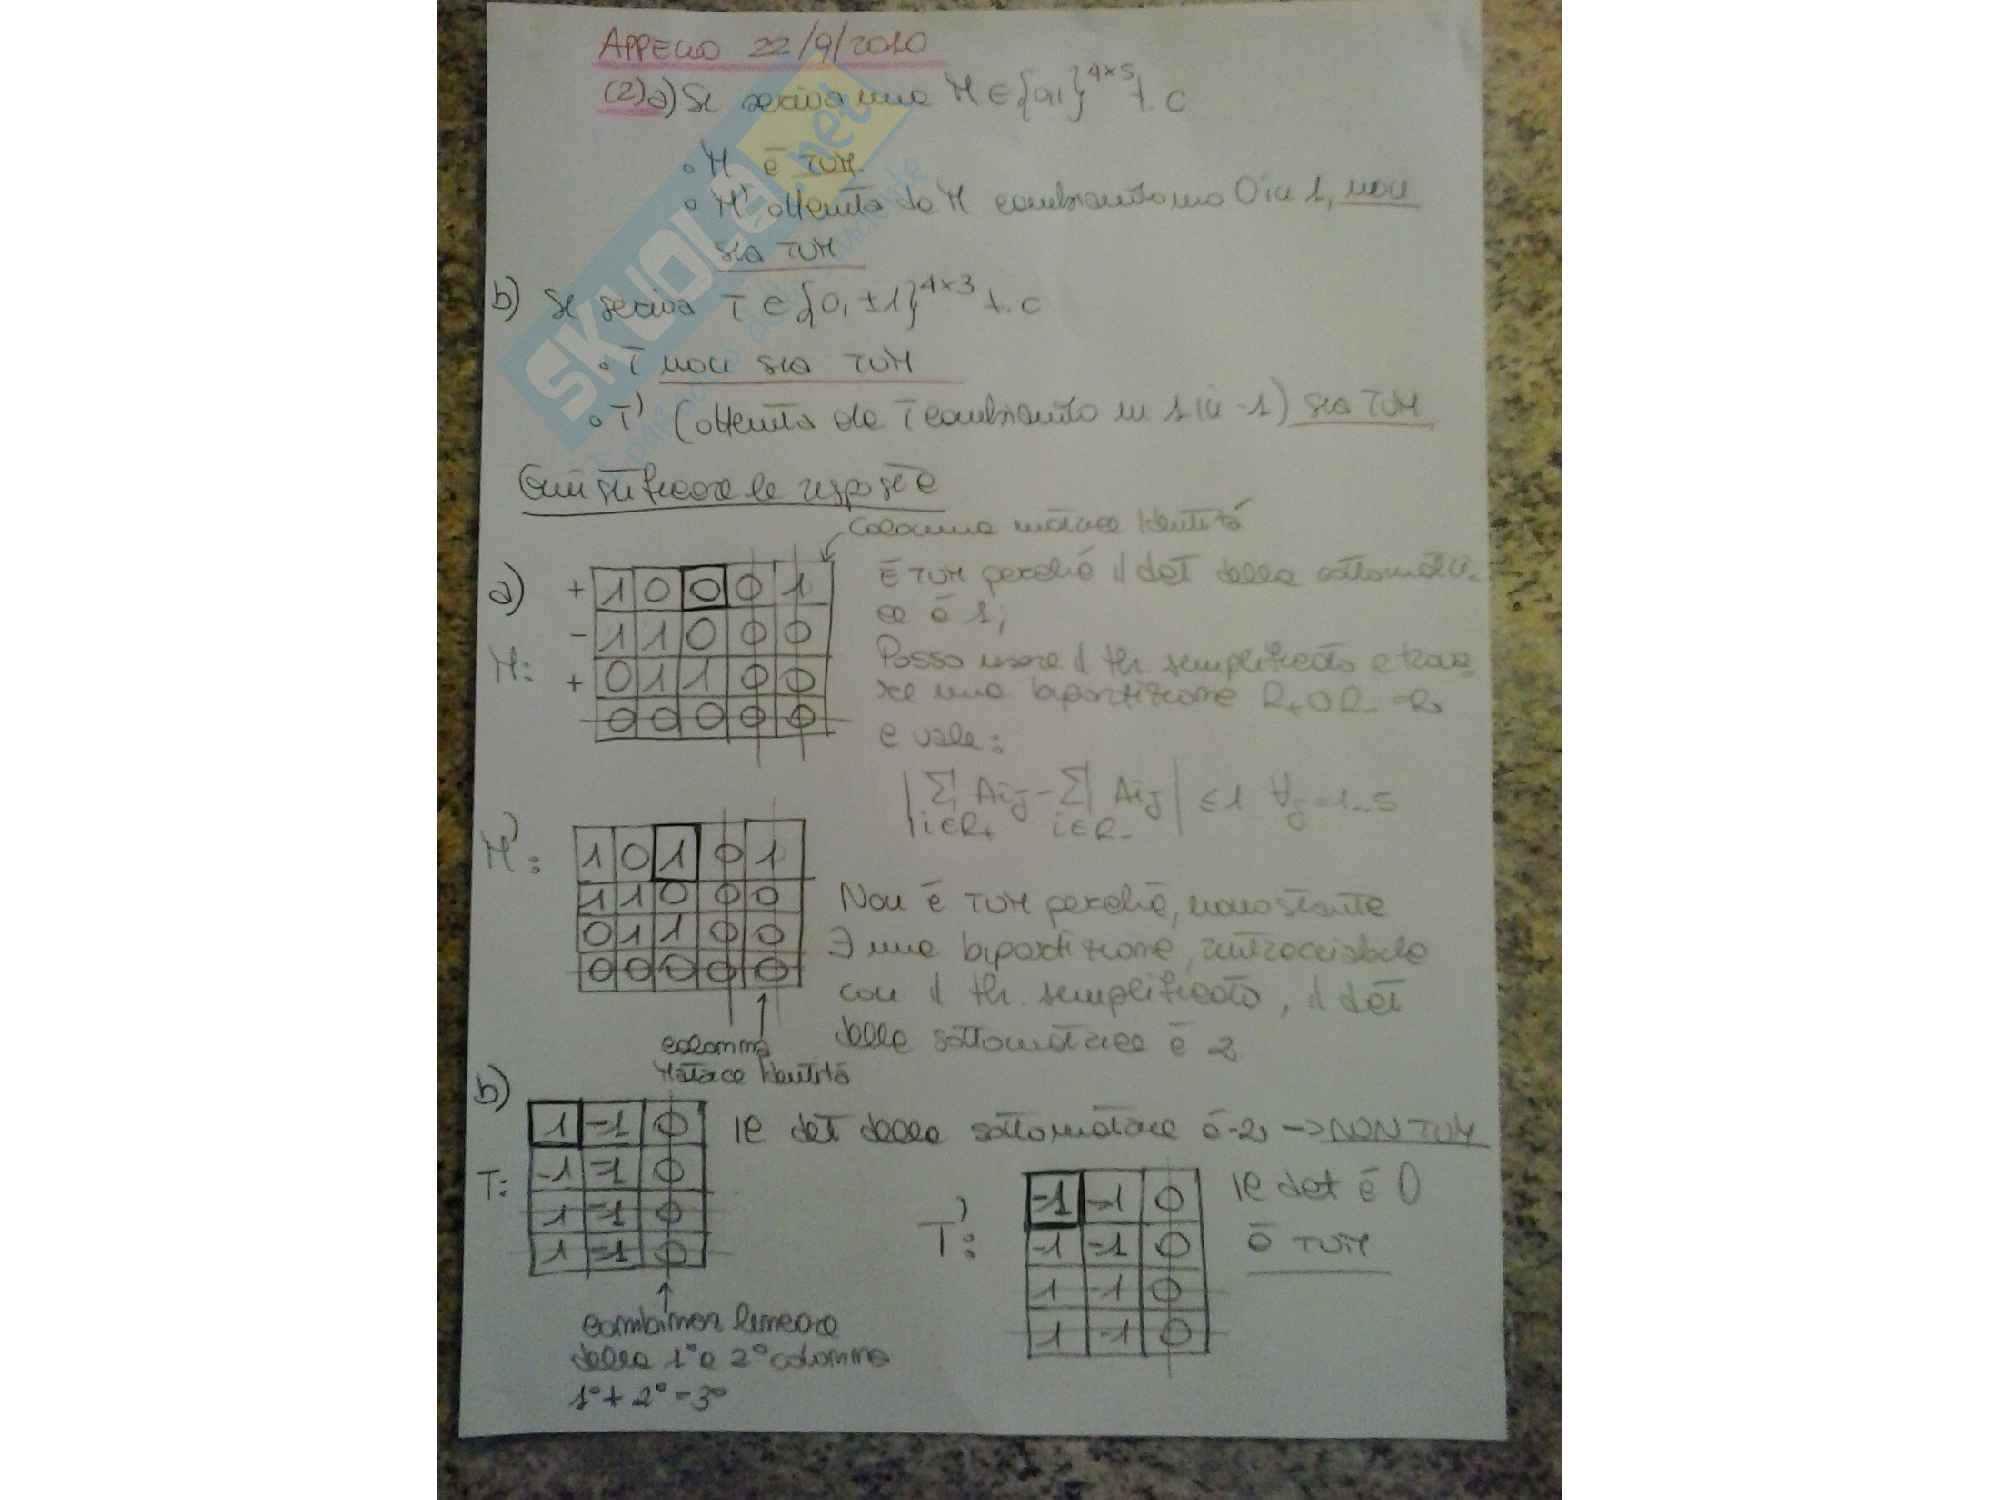 APPELLO 22/9/2010
(2)a) Si scriva una M ∈ {0,1}^{4×5} t.c
• M è TUM
• M' ottenuta da M cambiando uno 0 in 1, non
sia TUM
b) Si scriva T ∈ {0, ±1}^{4×3} t.c
• T non sia TUM
• T' (ottenuta da T cambiando un 1 in -1) sia TUM
Giustificare le risposte
Colonna matrice identità
a) + 1 0 0 0 1
- 1 1 0 0 0
M: + 0 1 1 0 0
0 0 0 0 0
È TUM perché il det della sottomatri-
ce è 1,
Posso usare il th. semplificato e trova
re una bipartizione R+ R-
e vale:
|∑ Aij - ∑ Aij| ≤ 1 ∀j = 1..5
i∈R+ i∈R-
M':
1 0 1 0 1
1 1 0 0 0
0 1 1 0 0
0 0 0 0 0
Non è TUM perché, nonostante
∃ una bipartizione, rintracciabile
con il th. semplificato, il det
della sottomatrice è 2
colonna
Matrice identità
b)
T:
1 -1 0
-1 -1 0
1 -1 0
1 -1 0
Il det della sottomatrice è -2 -> NON TUM
T':
-1 -1 0
-1 -1 0
1 -1 0
1 -1 0
Il det è 0
è TUM
combinaz lineare
della 1° e 2° colonna
1° + 2° = 3°
SKUOLA.net